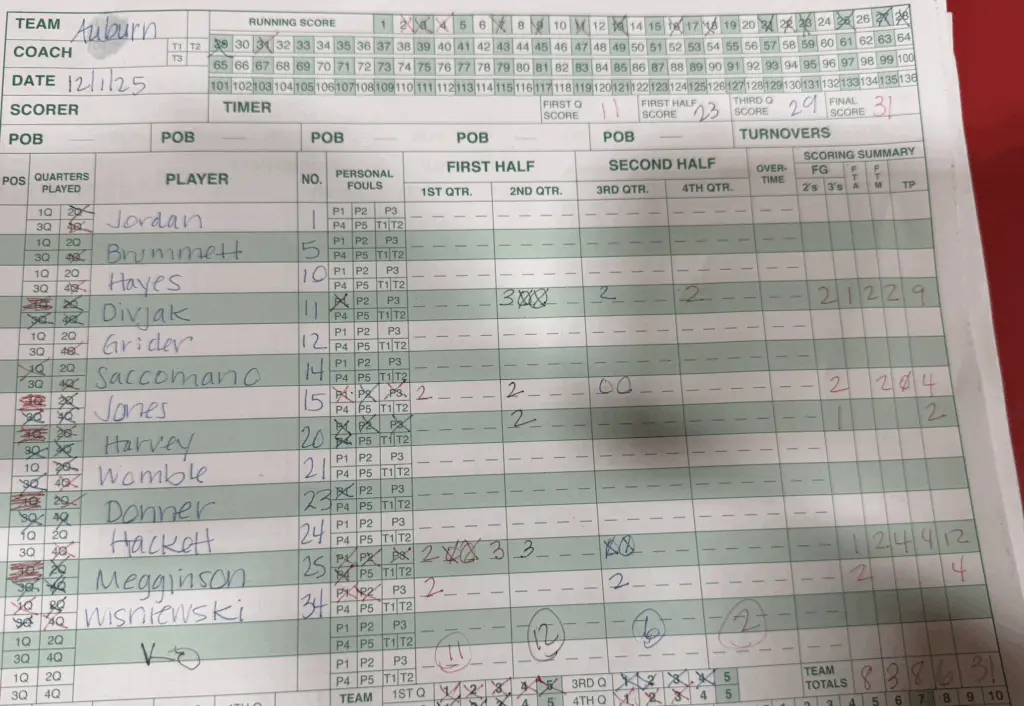 TEAM Auburn RUNNING SCORE 1 2 3 4 5 6 7 8 9 10 11 12 13 14 15 16 17 18 19 20 21 22 23 24 25 26 27 28
COACH T1 T2 T3 29 30 31 32 33 34 35 36 37 38 39 40 41 42 43 44 45 46 47 48 49 50 51 52 53 54 55 56 57 58 59 60 61 62 63 64
65 66 67 68 69 70 71 72 73 74 75 76 77 78 79 80 81 82 83 84 85 86 87 88 89 90 91 92 93 94 95 96 97 98 99 100
DATE 12/1/25 101 102 103 104 105 106 107 108 109 110 111 112 113 114 115 116 117 118 119 120 121 122 123 124 125 126 127 128 129 130 131 132 133 134 135 136
SCORER TIMER FIRST Q SCORE 11 FIRST HALF SCORE 23 THIRD Q SCORE 29 FINAL SCORE 31
POB POB POB POB POB TURNOVERS
POS QUARTERS PLAYED PLAYER NO. PERSONAL FOULS FIRST HALF SECOND HALF OVER-TIME SCORING SUMMARY
1ST QTR. 2ND QTR. 3RD QTR. 4TH QTR. FG 2's 3's FTA FTM TP
1Q 2Q 3Q 4Q Jordan 1 P1 P2 P3 P4 P5 T1 T2
1Q 2Q 3Q 4Q Brummett 5 P1 P2 P3 P4 P5 T1 T2
1Q 2Q 3Q 4Q Hayes 10 P1 P2 P3 P4 P5 T1 T2
1Q 2Q 3Q 4Q Divjak 11 P1 P2 P3 P4 P5 T1 T2 3 0 0 2 2 2 1 2 2 9
1Q 2Q 3Q 4Q Grider 12 P1 P2 P3 P4 P5 T1 T2
1Q 2Q 3Q 4Q Saccomano 14 P1 P2 P3 P4 P5 T1 T2
1Q 2Q 3Q 4Q Jones 15 P1 P2 P3 P4 P5 T1 T2 2 2 0 0 2 2 0 4
1Q 2Q 3Q 4Q Harvey 20 P1 P2 P3 P4 P5 T1 T2 2 1 2
1Q 2Q 3Q 4Q Womble 21 P1 P2 P3 P4 P5 T1 T2
1Q 2Q 3Q 4Q Donner 23 P1 P2 P3 P4 P5 T1 T2
1Q 2Q 3Q 4Q Hackett 24 P1 P2 P3 P4 P5 T1 T2
1Q 2Q 3Q 4Q Megginson 25 P1 P2 P3 P4 P5 T1 T2 2 0 0 3 3 0 0 1 2 4 4 12
1Q 2Q 3Q 4Q Wisniewski 34 P1 P2 P3 P4 P5 T1 T2 2 2 2 4
1Q 2Q 3Q 4Q P1 P2 P3 P4 P5 T1 T2 11 12 6 2
1Q 2Q 3Q 4Q P1 P2 P3 P4 P5 T1 T2
TEAM 1ST Q 1 2 3 4 5 3RD Q 1 2 3 4 5 TEAM TOTALS 8 3 8 6 31
4TH Q 1 2 3 4 5 1 2 3 4 5 6 7 8 9 10